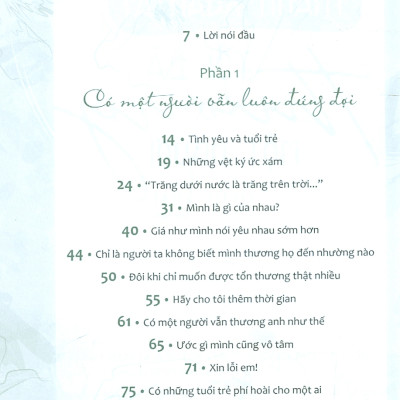 7 • Lời nói đầu
Phần 1
Có một người vẫn luôn đứng đợi
14 • Tình yêu và tuổi trẻ
19 • Những vệt ký ức xám
24 • “Trăng dưới nước là trăng trên trời...”
31 • Mình là gì của nhau?
40 • Giá như mình nói yêu nhau sớm hơn
44 • Chỉ là người ta không biết mình thương họ đến nhường nào
50 • Đôi khi chỉ muốn được tổn thương thật nhiều
55 • Hãy cho tôi thêm thời gian
61 • Có một người vẫn thương anh như thế
65 • Ước gì mình cũng vô tâm
71 • Xin lỗi em!
75 • Có những tuổi trẻ phí hoài cho một ai